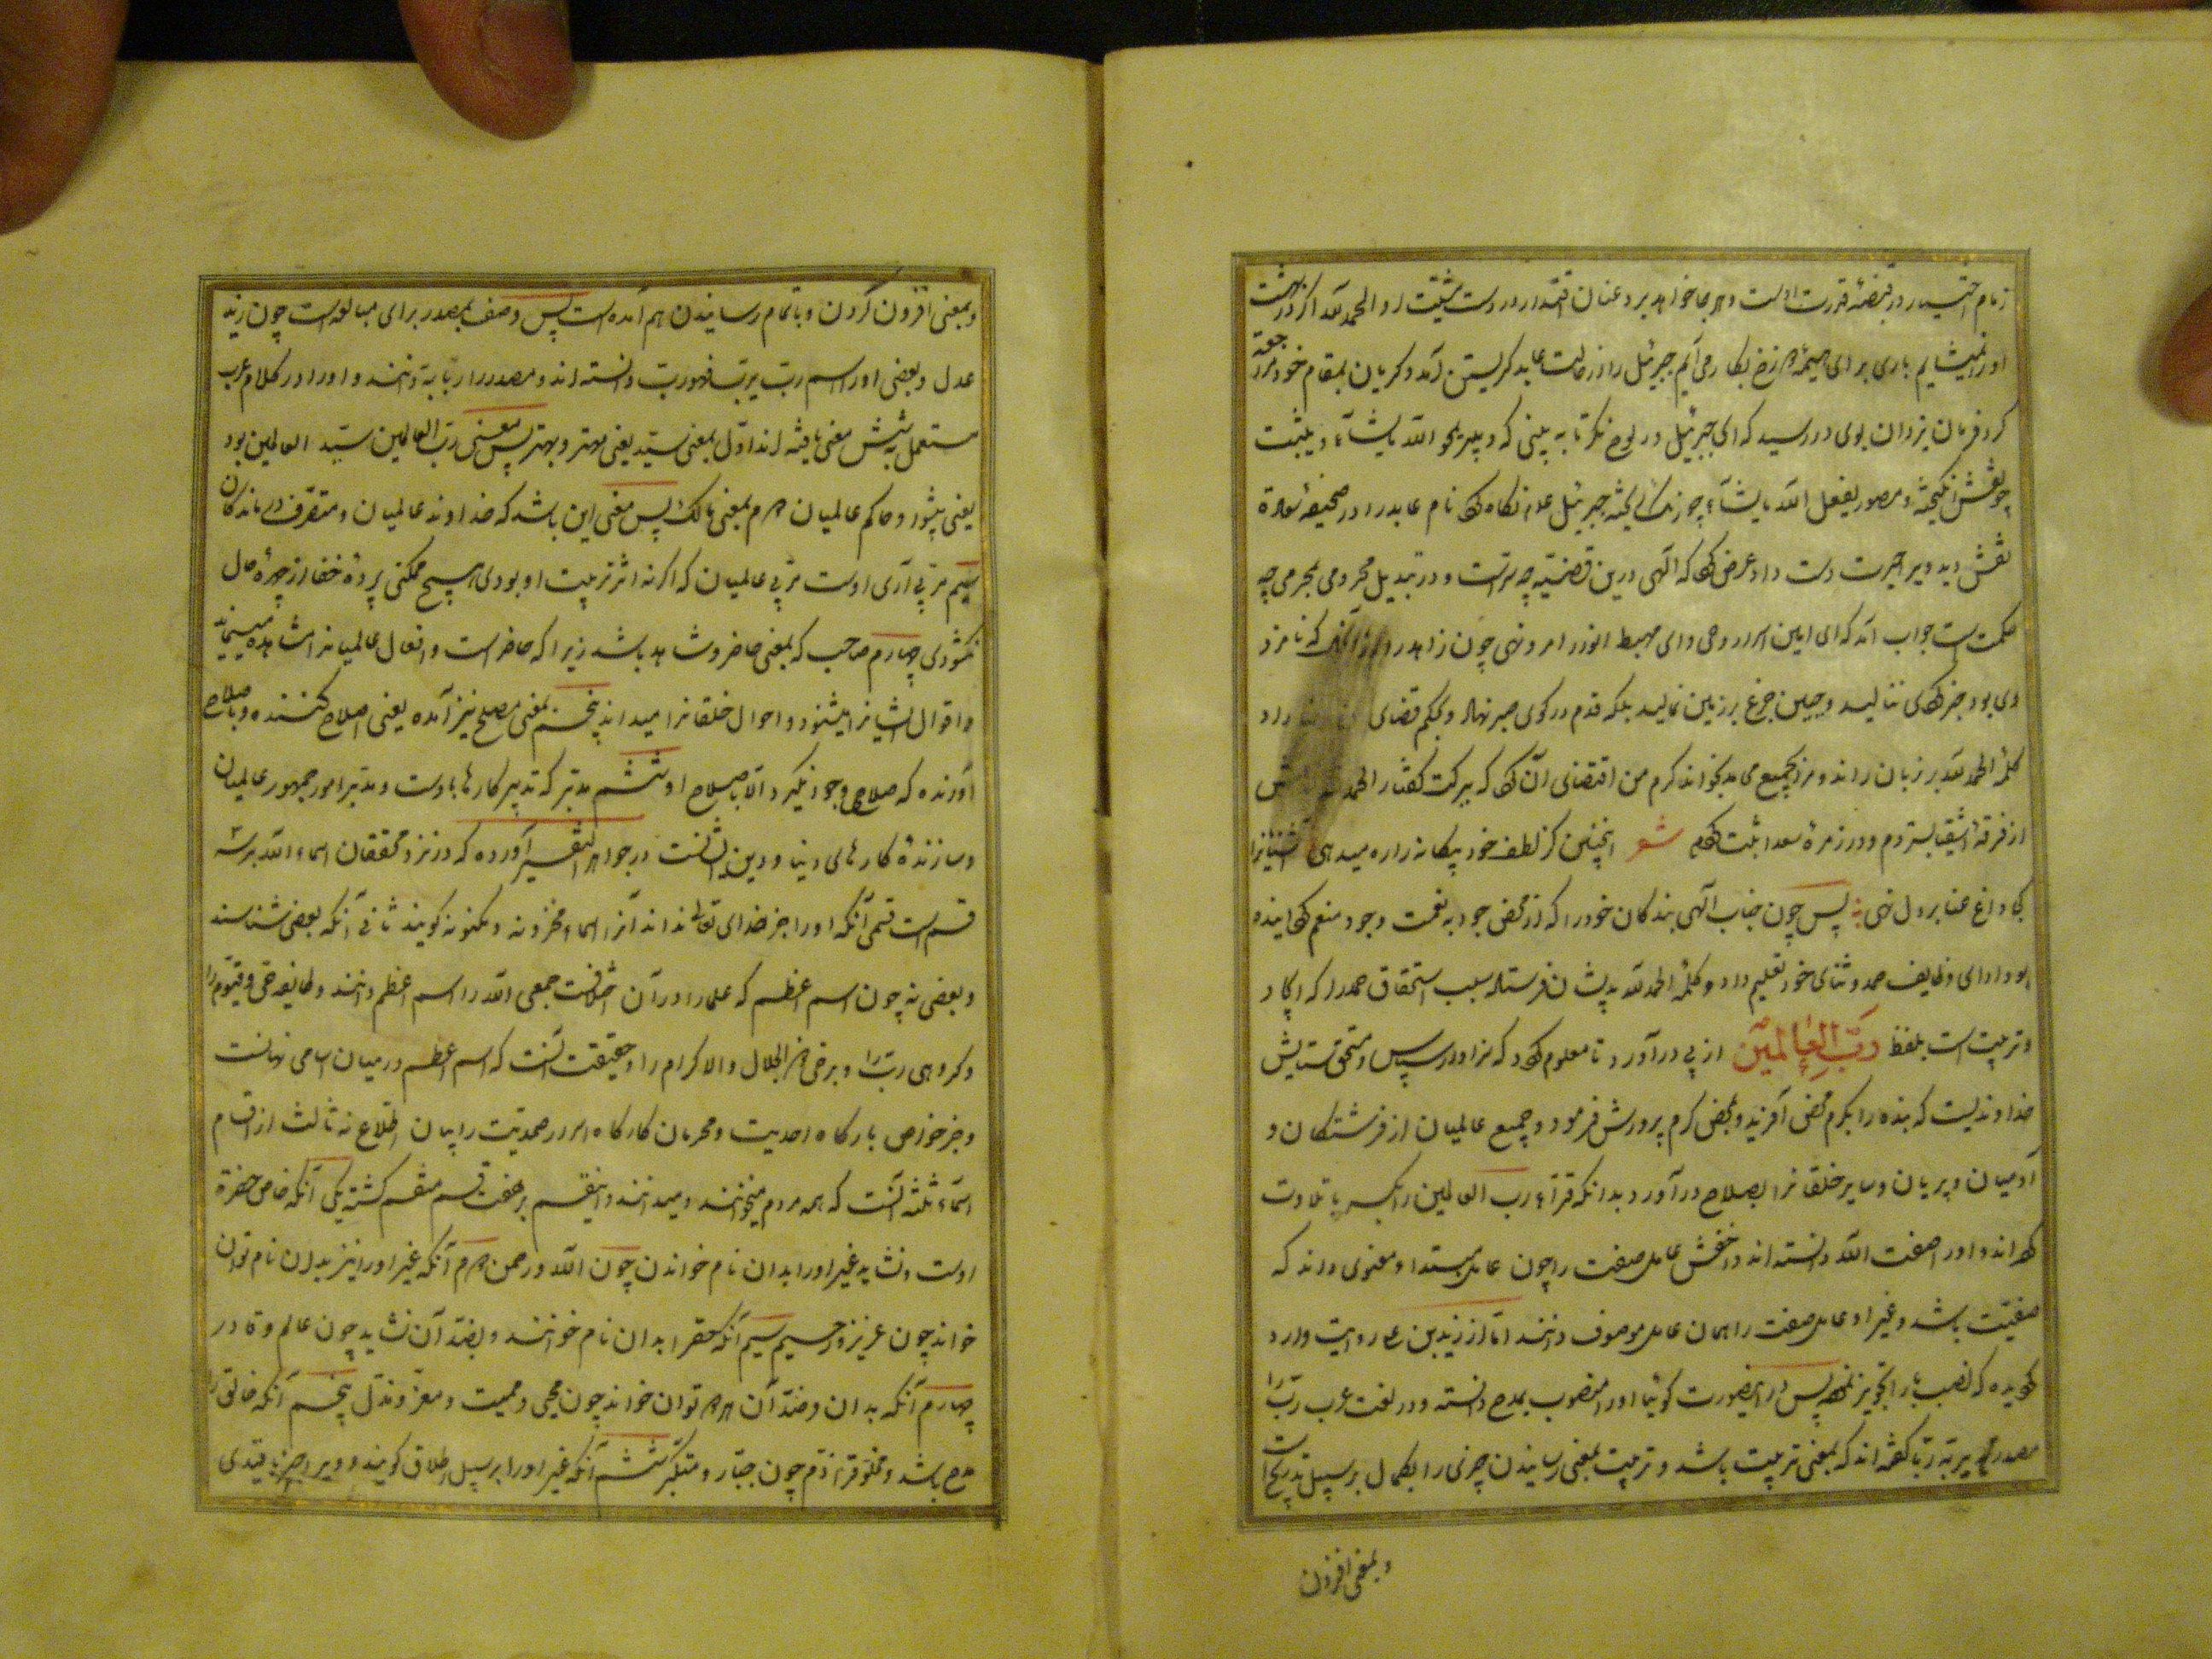 زمام اختیار در قبضهٔ قدرت اوست و هر جا خواهد برد عنان اقتدار در دست مشیّت او و الحمد لله اگر در بهشت
او را نمیشایم باری برای هیمهٔ دوزخ بکار می آیم جبرئیل را از رقت عابد کریستن آمد و کریان بمقام خود مراجعه
کرد فرمان یزدان بوی در رسید که ای جبرئیل در لوح نکر تا به بینی که دبیر یمحو الله ما یشآء و یثبت
چه نقش انکیخته و مصور یفعل الله ما یشآء چه رنک ریخته جبرئیل علم نکاه کرد نام عابد را در صحیفهٔ سعداء
نقش دید ویرا حیرت دست داد عرض کرد که الهی درین قضیّه چه سرّست و در تبدیل محرومی بمجرمی چه
حکمت است جواب آمد که ای امین اسرار وحی و ای مهبط انوار امر و نهی چون زاهد را از آنچه که نامزد
وی بود خبر کردی ننالید و جبین جزع بر زمین نمالید بلکه قدم در کوی صبر نهاد و بحکم قضای رضا داد
کلمهٔ الحمد لله بر زبان راند و مرا بجمیع محامد بخواند کرم من اقتضای آن کرد که ببرکت کفتار الحمد لله نامش
از فرقهٔ اشقیا بستردم و در زمرهٔ سعدا ثبت کردم شعر اینچنین کز لطف خود بیکانه را ره میدهی آشنا را
کی داغ عنا بر دل نهی پس چون جناب الهی بندکان خود را که از محض جود به نعمت وجود منعم کردانیده
بود ادای وظایف حمد و ثنای خود تعلیم داد و کلمهٔ الحمد لله بدیشان فرستاد سبب استحقاق حمد را که ایجاد
و تربیت است بلفظ رَبِّ العَالَمِینَ از پی در آورد تا معلوم کردد که سزاوار سپاس و مستحق ستایش
خداوندیست که بنده را بکرم محض آفرید و بمحض کرم پرورش فرمود و جمیع عالمیان از فرشتکان و
آدمیان و پریان و سایر خلقانرا بصلاح در آورد بدانکه قرآء رب العالمین را بکسر با تلاوت
کرده اند و او را صفت الله دانسته اند و اخفش عامل صفت را چون عامل مبتدا معنوی داند که
صفتیّت باشد و غیر او عامل صفت را همان عامل موصوف دانند امّا از زید بن علی روایت وارد
کردیده که نصب با را تجویز نموده پس در اینصورت کوئیا او را منصوب بمدح دانسته و در لغت عرب ربّ را
مصدر ربّ یربّه ربّا کفته اند که بمعنی تربیت باشد و تربیت بمعنی رسانیدن چیزی را بکمال بر سبیل تدریج است
و بمعنی افزون
و بمعنی افزون کردن و باتمام رسانیدن هم آمده است پس وصف بمصدر برای مبالغه است چون زید
عدل و بعضی او را اسم ربّ یربّ فهو ربّ دانسته اند و مصدر را ربابة دانند و او را در کلام عرب
مستعمل به شش معنی یافته اند اوّل بمعنی سیّد یعنی مهتر و بهتر پس معنی ربّ العالمین سیّد العالمین بود
یعنی پیشوا و حاکم عالمیان دوم بمعنی مالک پس معنی این باشد که خداوند عالمیان و متصرّف در بندکان
سیم مربّی آری اوست مربّی عالمیان که اکر نه اثر تربیت او بودی هیچ ممکنی پردهٔ خفا از چهرهٔ حال
نکشودی چهارم صاحب که بمعنی حاضر و شاهد باشد زیرا که حاضر است و افعال عالمیانرا مشاهده مینماید
و اقوال ایشانرا میشنود و احوال خلقانرا میداند پنجم بمعنی مصلح نیز آمده یعنی اصلاح کننده و بصلاح
آورنده که صلاحی وجود نگیرد الّا باصلاح او ششم مدبّر که تدبیر کارها باوست و مدبّر امور جمهور عالمیان
و سازندهٔ کارهای دنیا و دین ایشانست در جواهر التفسیر آورده که در نزد محققان اسماء الله بر سه
قسم است قسمی آنکه او را جز خدای تعالی نداند آنرا اسماء مخزونه و مکنونه کویند ثانی آنکه بعضی شناسند
و بعضی نه چون اسم اعظم که علما را در آن اختلافست جمعی الله را اسم اعظم دانند و طایفه حیّ و قیّوم را
و کروهی ربّ را و برخی ذو الجلال و الاکرام را و حقیقت آنست که اسم اعظم در میان اسامی نهانست
و جز خواص بارکاه احدیت و محرمان کارکاه اسرار صمدیّت را بدان اطّلاع نه ثالث از اقسام
اسمآء ثلثه آنست که همه مردم میخوانند و میدانند و اینقسم بر هفت قسم منقسم کشته یکی آنکه خاص حضرة
اوست و نشاید غیر او را بدان نام خواندن چون الله و رحمن دوم آنکه غیر او را نیز بدان نام توان
خواند چون عزیز و رحیم سیم آنکه حقرا بدان نام خوانند و بضدّ آن نشاید چون عالم و قادر
چهارم آنکه بدان و ضدّ آن هر دو توان خواند چون محیی و ممیت و معزّ و مذلّ پنجم آنکه خالق را
مدح باشد و مخلوقرا ذم چون جبّار و متکبّر ششم آنکه غیر او را بر سبیل اطلاق کویند و ویرا جز بقیدی